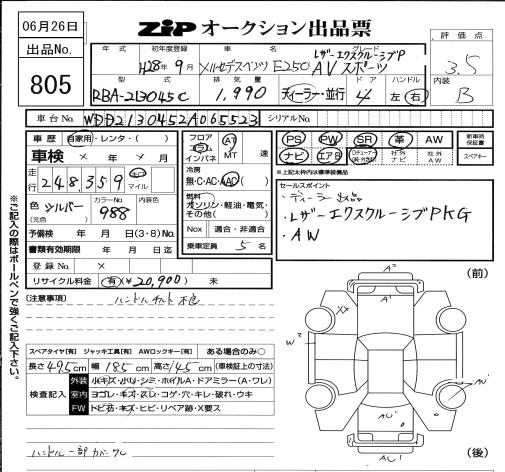 06月26日
ZIP オークション出品票
出品No.
805
評価点
3.5
内装
B
年式 初年度登録 車名 グレード
H28年9月 メルセデスベンツ E250 レザーエクスクルーシブP AVスポーツ
型式 排気量 ドア ハンドル
RBA-213045C 1,990 ディーラー・並行 4 左・右
車台No. WDD2130452A065523 シリアルNo.
車歴 自家用・レンタ・( )
車検 × 年 × 月
走行 248,359 キロ マイル
色 シルバー (元色) カラーNo. 988 内装色
予備検 年 月 日(3・8)No.
書類有効期限 年 月 日迄
登録No. ×
リサイクル料金 有(¥20,900) 未
フロア コラム インパネ AT MT 速
冷房 無・C・AC・AAC
燃料 ガソリン・軽油・電気・その他( )
Nox 適合・非適合
乗車定員 5 名
PS PW SR 革 AW 新車時保証書
ナビ エアB 社外ナビ 社外AW スペアキー
*上記太枠内は標準装備品
セールスポイント
・ディーラー出品
・レザーエクスクルーシブPKG
・AW
(注意事項) ハンドルチルト不良
※ご記入の際はボールペンで強くご記入下さい。
スペアタイヤ[有] ジャッキ工具[有] AWロックキー[有] ある場合のみ○
長さ 495cm 幅 185cm 高さ 145cm (車検証上の寸法)
検査記入
外装 小キズ・小凹・シミ・ホイルA・ドアミラー(A・ワレ)
室内 ヨゴレ・キズ・スレ・コゲ・穴・キレ・破れ・ウキ
FW トビ石・キズ・ヒビ・リペア跡・X要ス
(前)
A²
A¹
XX
W²
AW
AU¹
AU¹
(後)